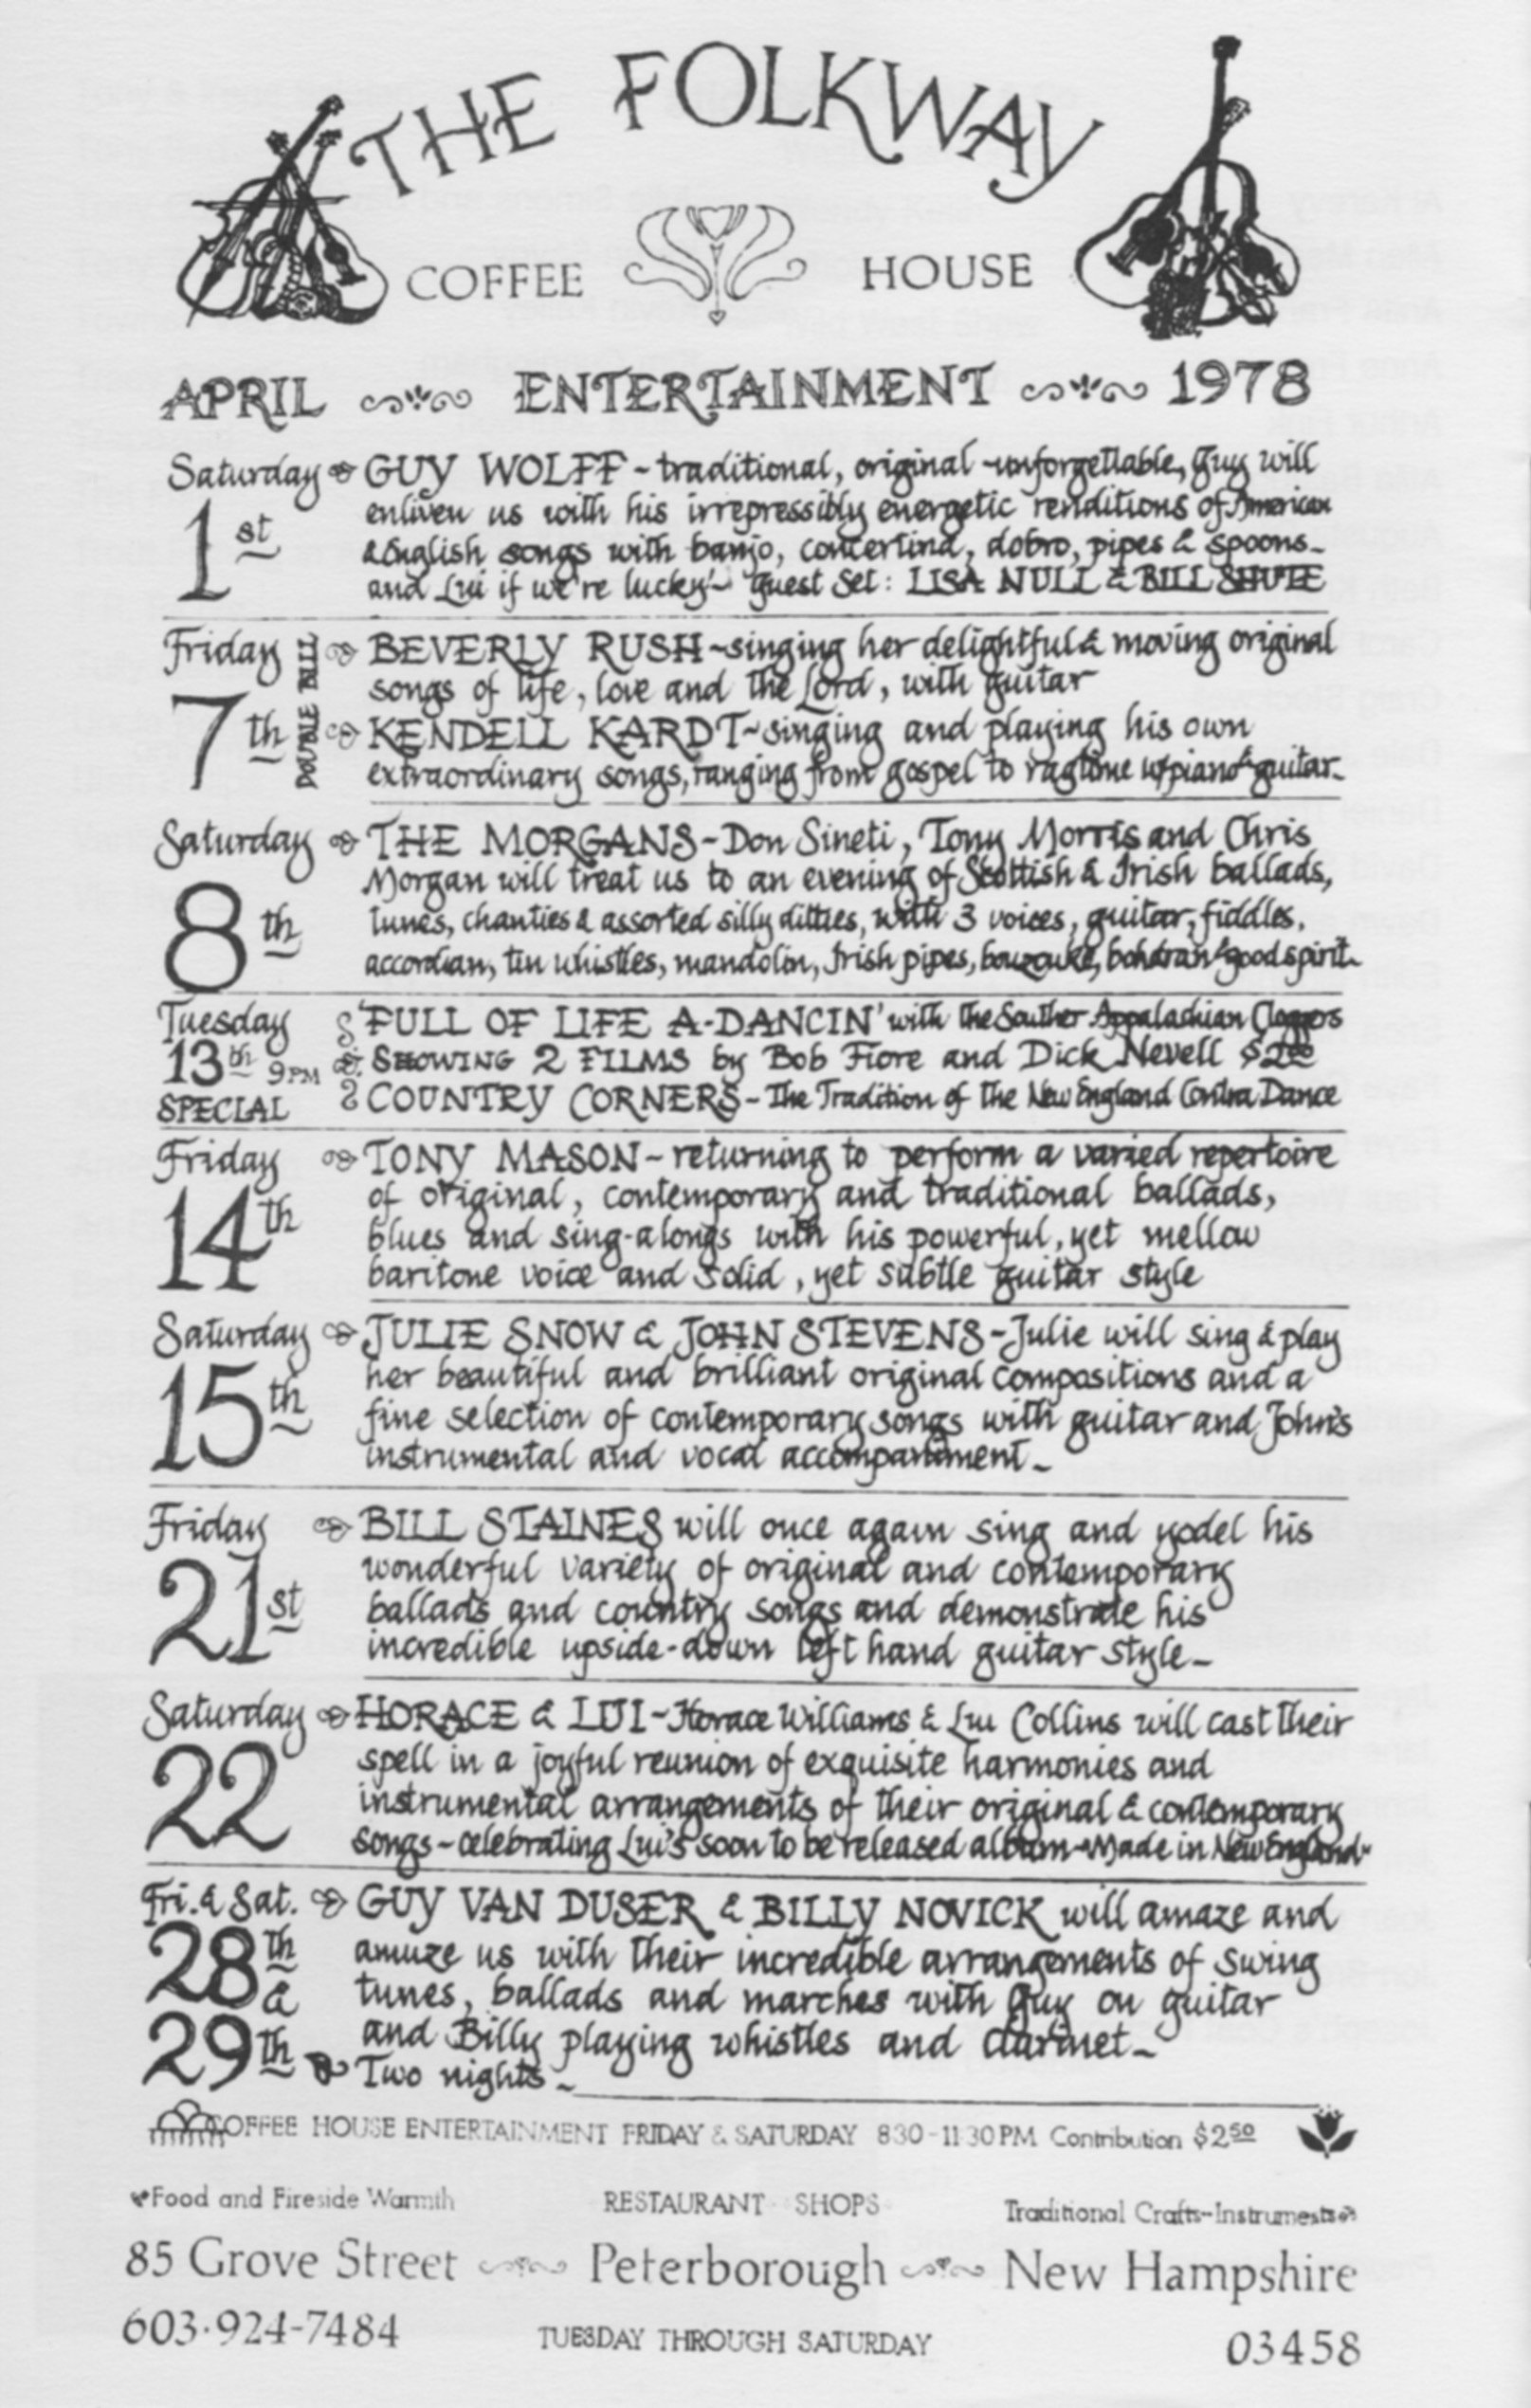 THE FOLKWAY
COFFEE HOUSE
APRIL ENTERTAINMENT 1978
Saturday GUY WOLFF - traditional, original - unforgettable, Guy will
1st enliven us with his irrepressibly energetic renditions of American
& English songs with banjo, concertina, dobro, pipes & spoons -
and Lui if we're lucky! - Guest Set: LISA NULL & BILL SHUTE
Friday BEVERLY RUSH - singing her delightful & moving original
songs of life, love and the Lord, with guitar
7th DOUBLE BILL KENDELL KARDT - singing and playing his own
extraordinary songs, ranging from gospel to ragtime w/piano & guitar -
Saturday THE MORGANS - Don Sineti, Tony Morris and Chris
Morgan will treat us to an evening of Scottish & Irish ballads,
8th tunes, chanties & assorted silly ditties, with 3 voices, guitar, fiddles,
accordian, tin whistles, mandolin, Irish pipes, bouzouke, bohdran & good spirit -
Tuesday 'FULL OF LIFE A-DANCIN' with the Souther Appalachian Cloggers
13th 9PM SHOWING 2 FILMS by Bob Fiore and Dick Nevell $2.00
SPECIAL COUNTRY CORNERS - The Tradition of the New England Contra Dance
Friday TONY MASON - returning to perform a varied repertoire
14th of original, contemporary and traditional ballads,
blues and sing-alongs with his powerful, yet mellow
baritone voice and solid, yet subtle guitar style
Saturday JULIE SNOW & JOHN STEVENS - Julie will sing & play
15th her beautiful and brilliant original compositions and a
fine selection of contemporary songs with guitar and John's
instrumental and vocal accompaniment -
Friday BILL STAINES will once again sing and yodel his
21st wonderful variety of original and contemporary
ballads and country songs and demonstrate his
incredible upside-down left hand guitar style -
Saturday HORACE & LUI - Horace Williams & Lui Collins will cast their
22 spell in a joyful reunion of exquisite harmonies and
instrumental arrangements of their original & contemporary
songs - celebrating Lui's soon to be released album - Made in New England -
Fri. & Sat. GUY VAN DUSER & BILLY NOVICK will amaze and
28th amuze us with their incredible arrangements of swing
& tunes, ballads and marches with Guy on guitar
29th and Billy playing whistles and clarinet -
Two nights -
COFFEE HOUSE ENTERTAINMENT FRIDAY & SATURDAY 8:30-11:30 PM Contribution $2.50
Food and Fireside Warmth RESTAURANT SHOPS Traditional Crafts-Instruments
85 Grove Street Peterborough New Hampshire
603·924-7484 TUESDAY THROUGH SATURDAY 03458